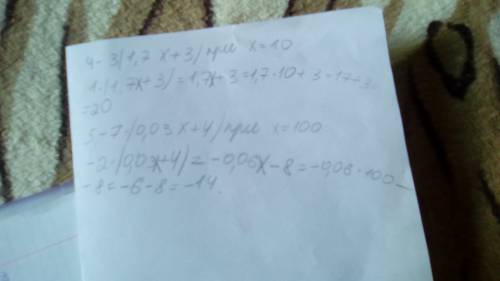 4-3(1,7x+3) при x=10
1·(1,7x+3)=1,7x+3=1,7·10+3=17+3=
=20
5-7·(0,03x+4) при x=100
-2·(0,03x+4)=-0,06x-8=-0,06·100-
-8=-6-8=-14.